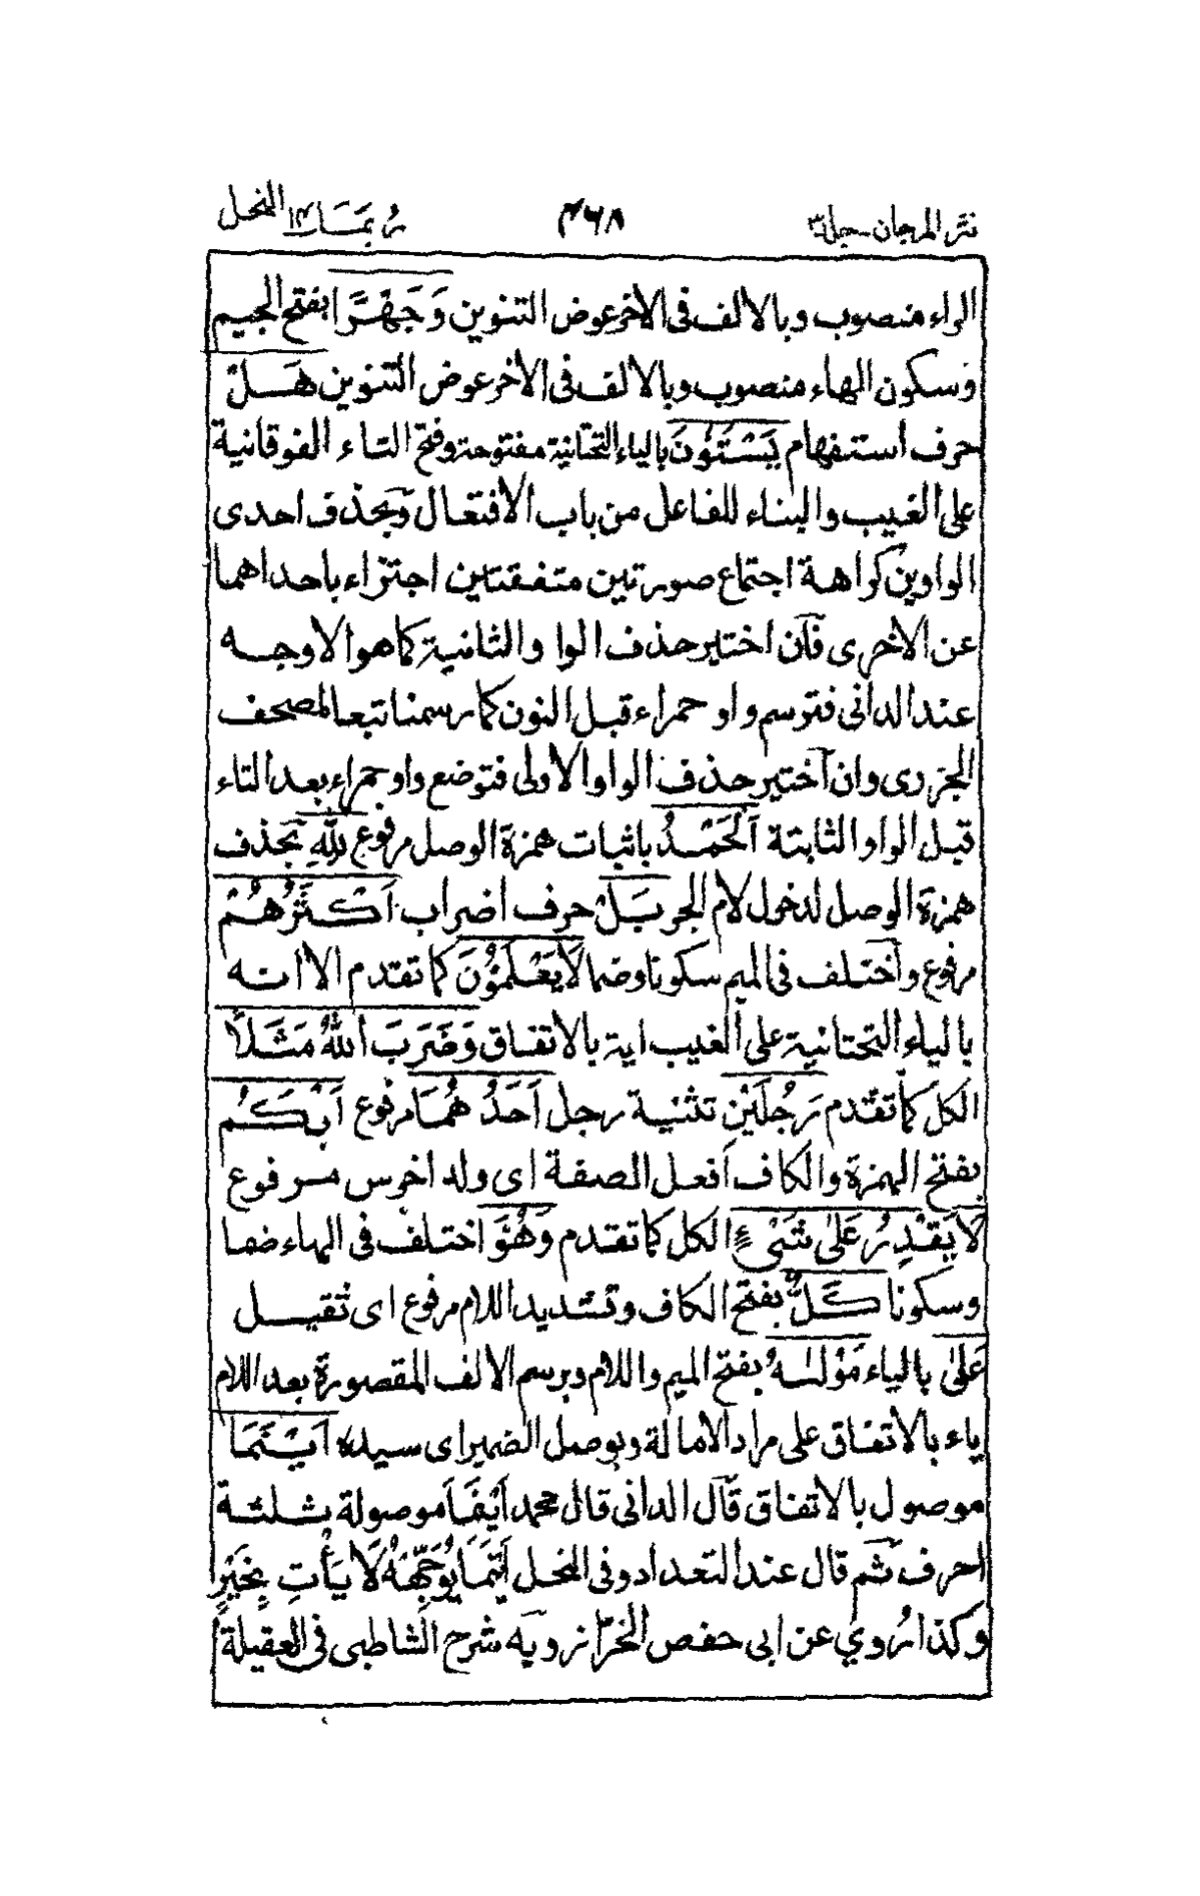 نثر المرجان - جلد ٣
٤٦٨
ربما ١٤ النحل
الراء منصوب وبالالف فى الاخر عوض التنوين وَجَهْرًا بفتح الجيم
وسكون الهاء منصوب وبالالف فى الاخر عوض التنوين هَلْ
حرف استفهام يَسْتَوٗنَ بالياء التحتانية مفتوحة وفتح التاء الفوقانية
على الغيب والبناء للفاعل من باب الافتعال وبحذف احدى
الواوين كراهة اجتماع صورتين متفقتين اجتزاء باحداهما
عن الاخرى فان اختير حذف الواو الثانية كما هو الاوجه
عند الدانى فترسم واو حمراء قبل النون كما رسمنا تبعا لمصحف
الجزرى وان اختير حذف الواو الاولى فتوضع واو حمراء بعد التاء
قبل الواو الثابتة اَلْحَمْدُ باثبات همزة الوصل مرفوع لِلّٰهِ بحذف
همزة الوصل لدخول لام الجر بَلْ حرف اضراب اَكْثَرُهُمْ
مرفوع واختلف فى الميم سكونا وضما لَا يَعْلَمُوْنَ كما تقدم الا انه
بالياء التحتانية على الغيب اية بالاتفاق وَضَرَبَ اللّٰهُ مَثَلًا
الكل كما تقدم رَجُلَيْنِ تثنية رجل اَحَدُهُمَا مرفوع اَبْكَمُ
بفتح الهمزة والكاف افعل الصفة اى ولد اخرس مرفوع
لَا يَقْدِرُ عَلٰى شَىْءٍ الكل كما تقدم وَهُوَ اختلف فى الهاء ضما
وسكونا كَلٌّ بفتح الكاف وتشديد اللام مرفوع اى ثقيل
عَلٰى بالياء مَوْلٰىهُ بفتح الميم واللام وبرسم الالف المقصورة بعد اللام
ياء بالاتفاق على مراد الامالة وبوصل الضمير اى سيده اَيْنَمَا
موصول بالاتفاق قال الدانى قال محمد اَيْنَمَا موصولة ثلثة
احرف ثم قال عند التعداد وفى النحل اَيْنَمَا يُوَجِّهْهُ لَا يَأْتِ بِخَيْرٍ
وكذا روي عن ابى حفص الخزاز وبه شرح الشاطبى فى العقيلة